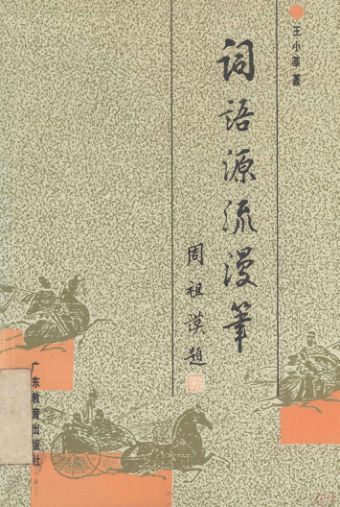 王小莘著
词语源流漫筆
周祖谟题
广东教育出版社